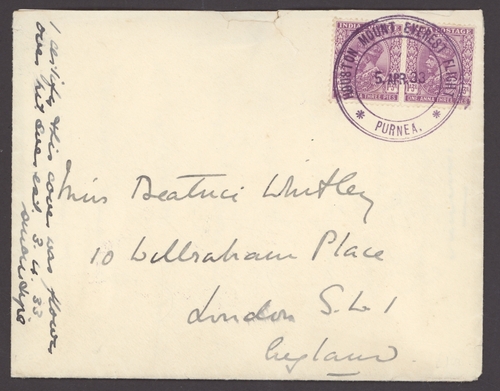 I certify this cover was flown
over Mt Everest. 3. 4. 33
INDIA POSTAGE
THREE PIES ONE ANNA THREE PIES
HOUSTON MOUNT EVEREST FLIGHT
5. APR. 33
* PURNEA. *
Miss Beatrice Whitley
10 Wilbraham Place
London S.W 1
England